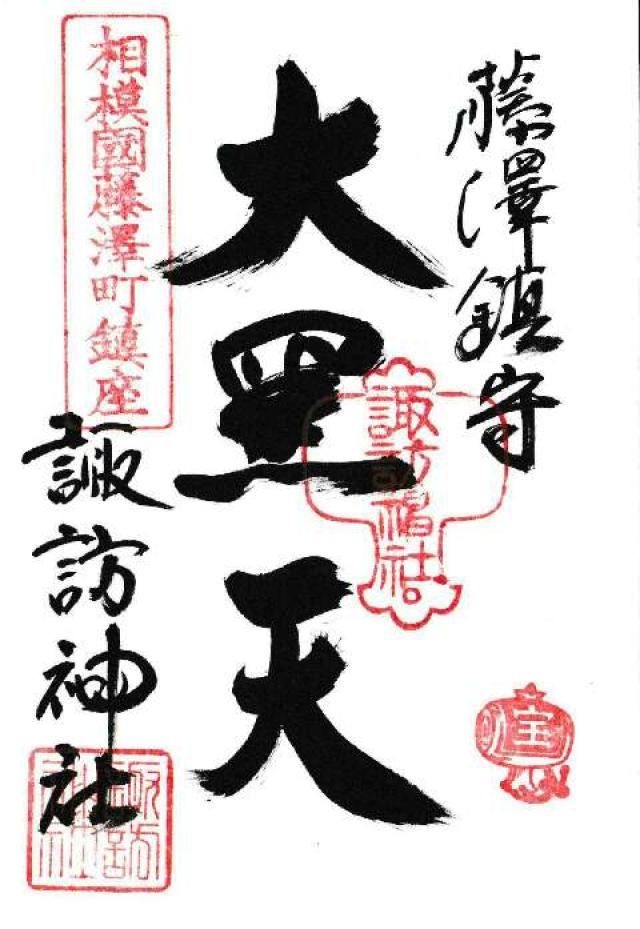 藤澤鎮守
大黒天
諏訪神社
相模國藤澤町鎮座
諏訪
神社
宝
諏訪
神社